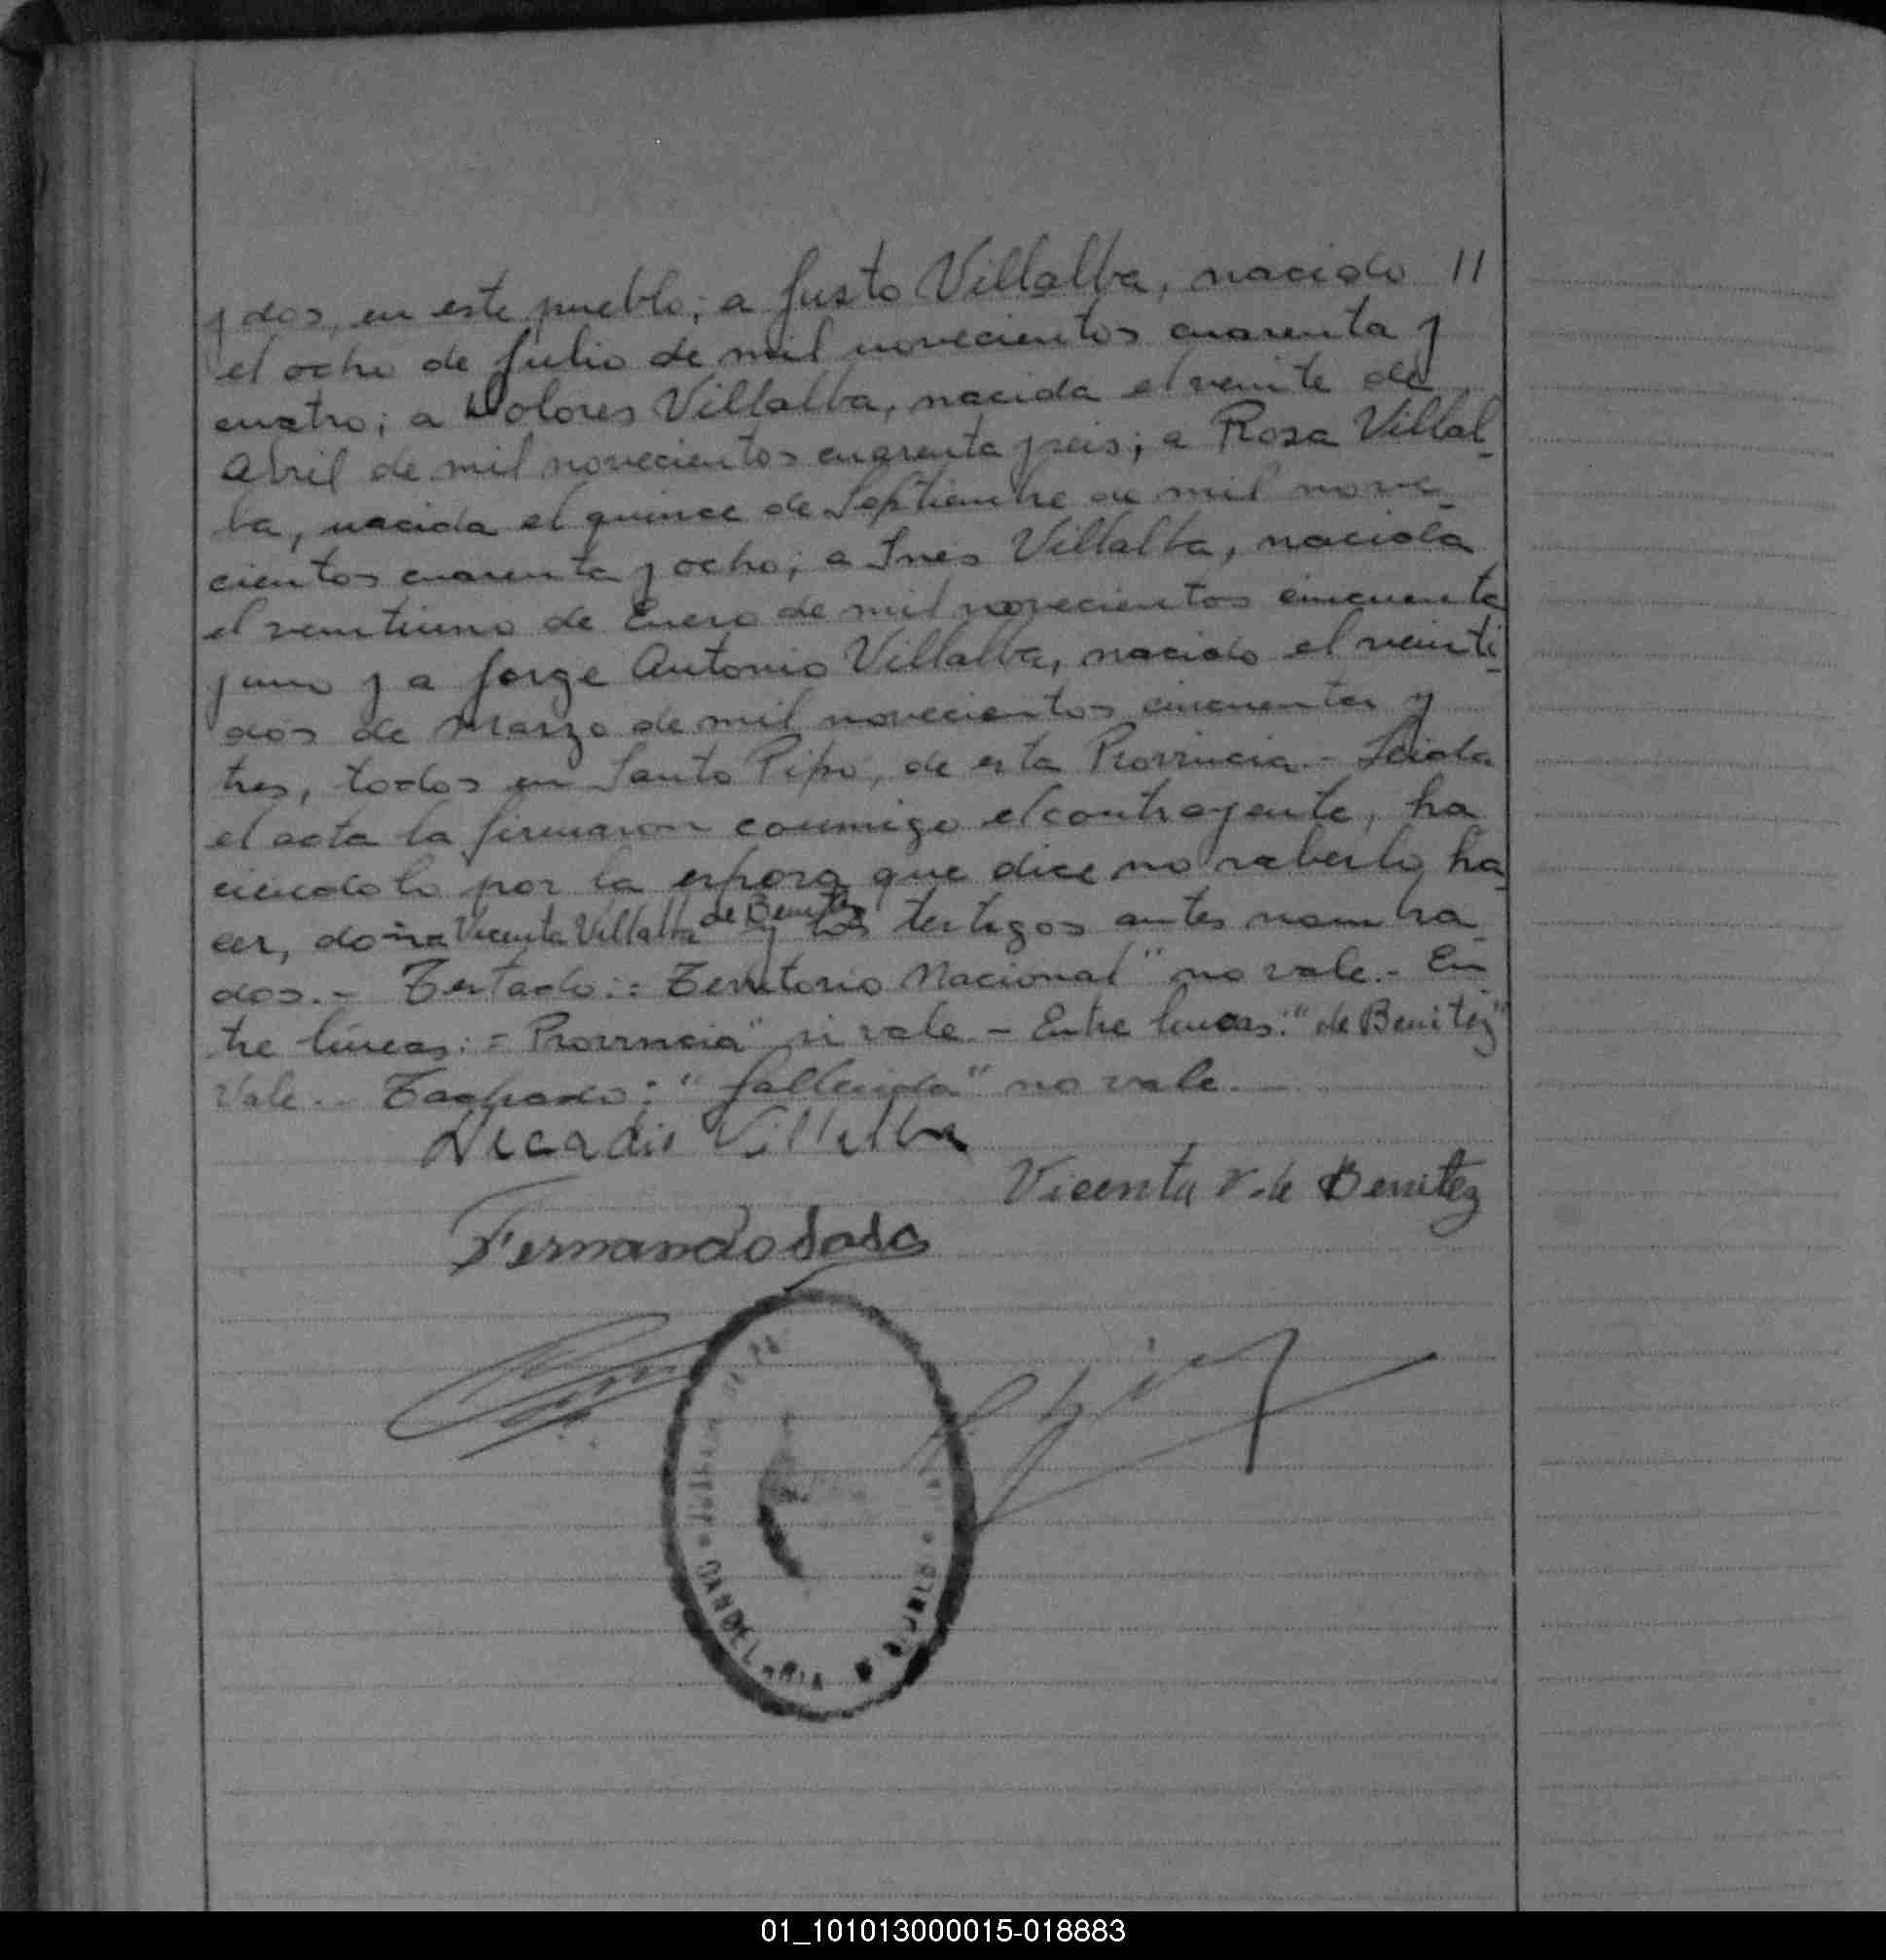 y dos, en este pueblo; a Justo Villalba, nacido 11
el ocho de Julio de mil novecientos cuarenta y
cuatro; a Dolores Villalba, nacida el veinte de
Abril de mil novecientos cuarenta y seis; a Rosa Villal-
ba, nacida el quince de Septiembre de mil nove-
cientos cuarenta y ocho; a Ines Villalba, nacida
el veintiuno de Enero de mil novecientos cincuenta
y uno y a Jorge Antonio Villalba, nacido el veinti-
dos de Marzo de mil novecientos cincuenta y
tres, todos en Santo Pipó, de esta Provincia.- Leida
el acta la firmaron conmigo el contrayente, ha
ciendolo por la esposa que dice no saberlo ha
cer, doña Vicenta Villalba de Benitez y los testigos antes nombra
dos.- Testado:= Territorio Nacional" no vale.- En
tre lineas:= Provincia" si vale.- Entre lineas: "de Benitez"
Vale.- Tachado: "fallecida" no vale.
Villalba
Vicenta V. de Benitez
Fernando Sosa
CANDELARIA
01_101013000015-018883